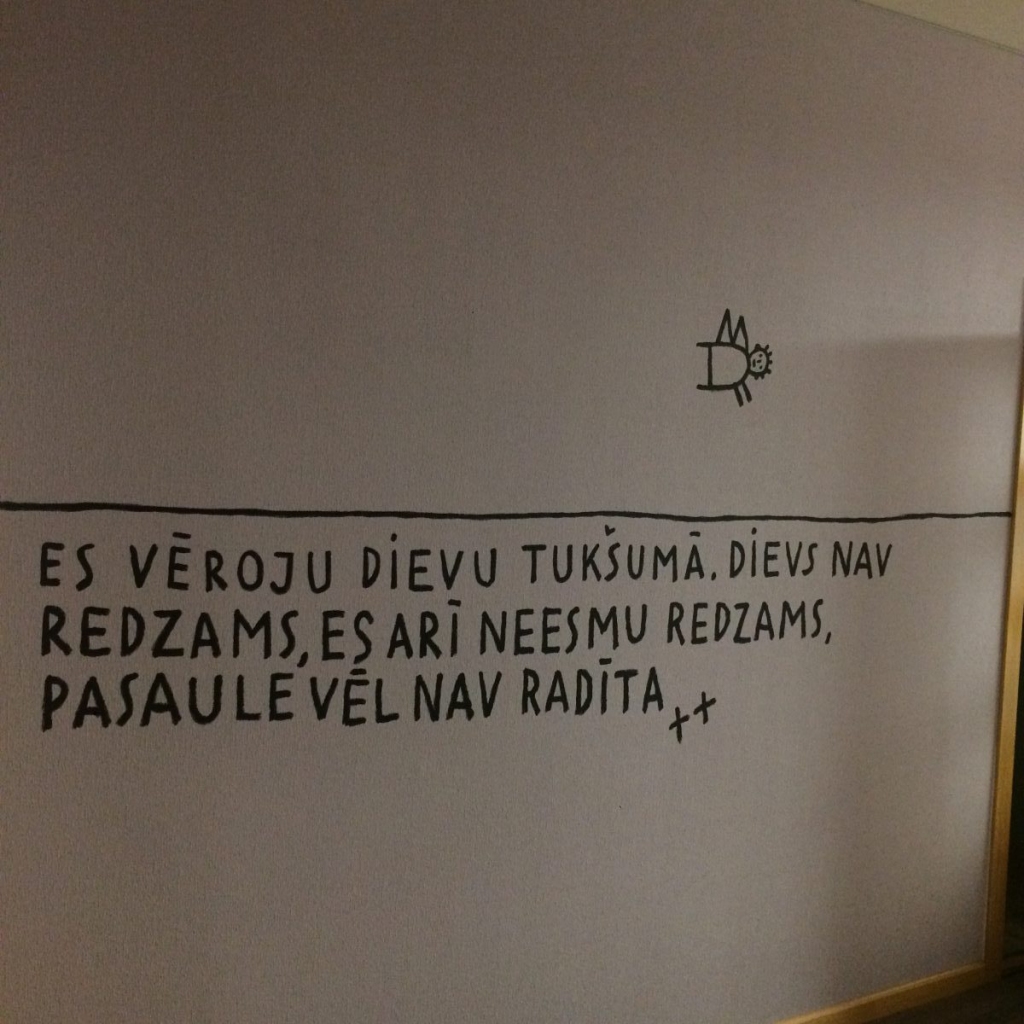 ES VĒROJU DIEVU TUKŠUMĀ. DIEVS NAV
REDZAMS, ES ARĪ NEESMU REDZAMS,
PASAULE VĒL NAV RADĪTA